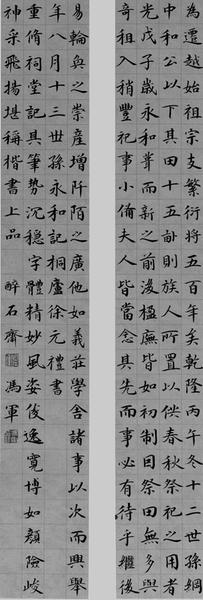 為遷越始祖宗支繁衍將五百年矣乾隆丙午冬十二世孫綱
中和公以下其田十五畝則族人所置以供春秋祭祀之用者
光戊子歲永和葺而新之前後楹廡皆如初制因祭田無多與
奇租入稍豐祀事小備夫人皆當念其先而事必有待乎繼後
易輪奐之崇產增阡陌之廣他如義莊學舍諸事以次而興舉
年八月十三世孫永和記桐廬徐元禮書
重脩祠堂記其筆勢沉穩字體精妙風姿俊逸寬博如顏險峻
神采飛揚堪稱楷書上品 醉石齋 馮軍